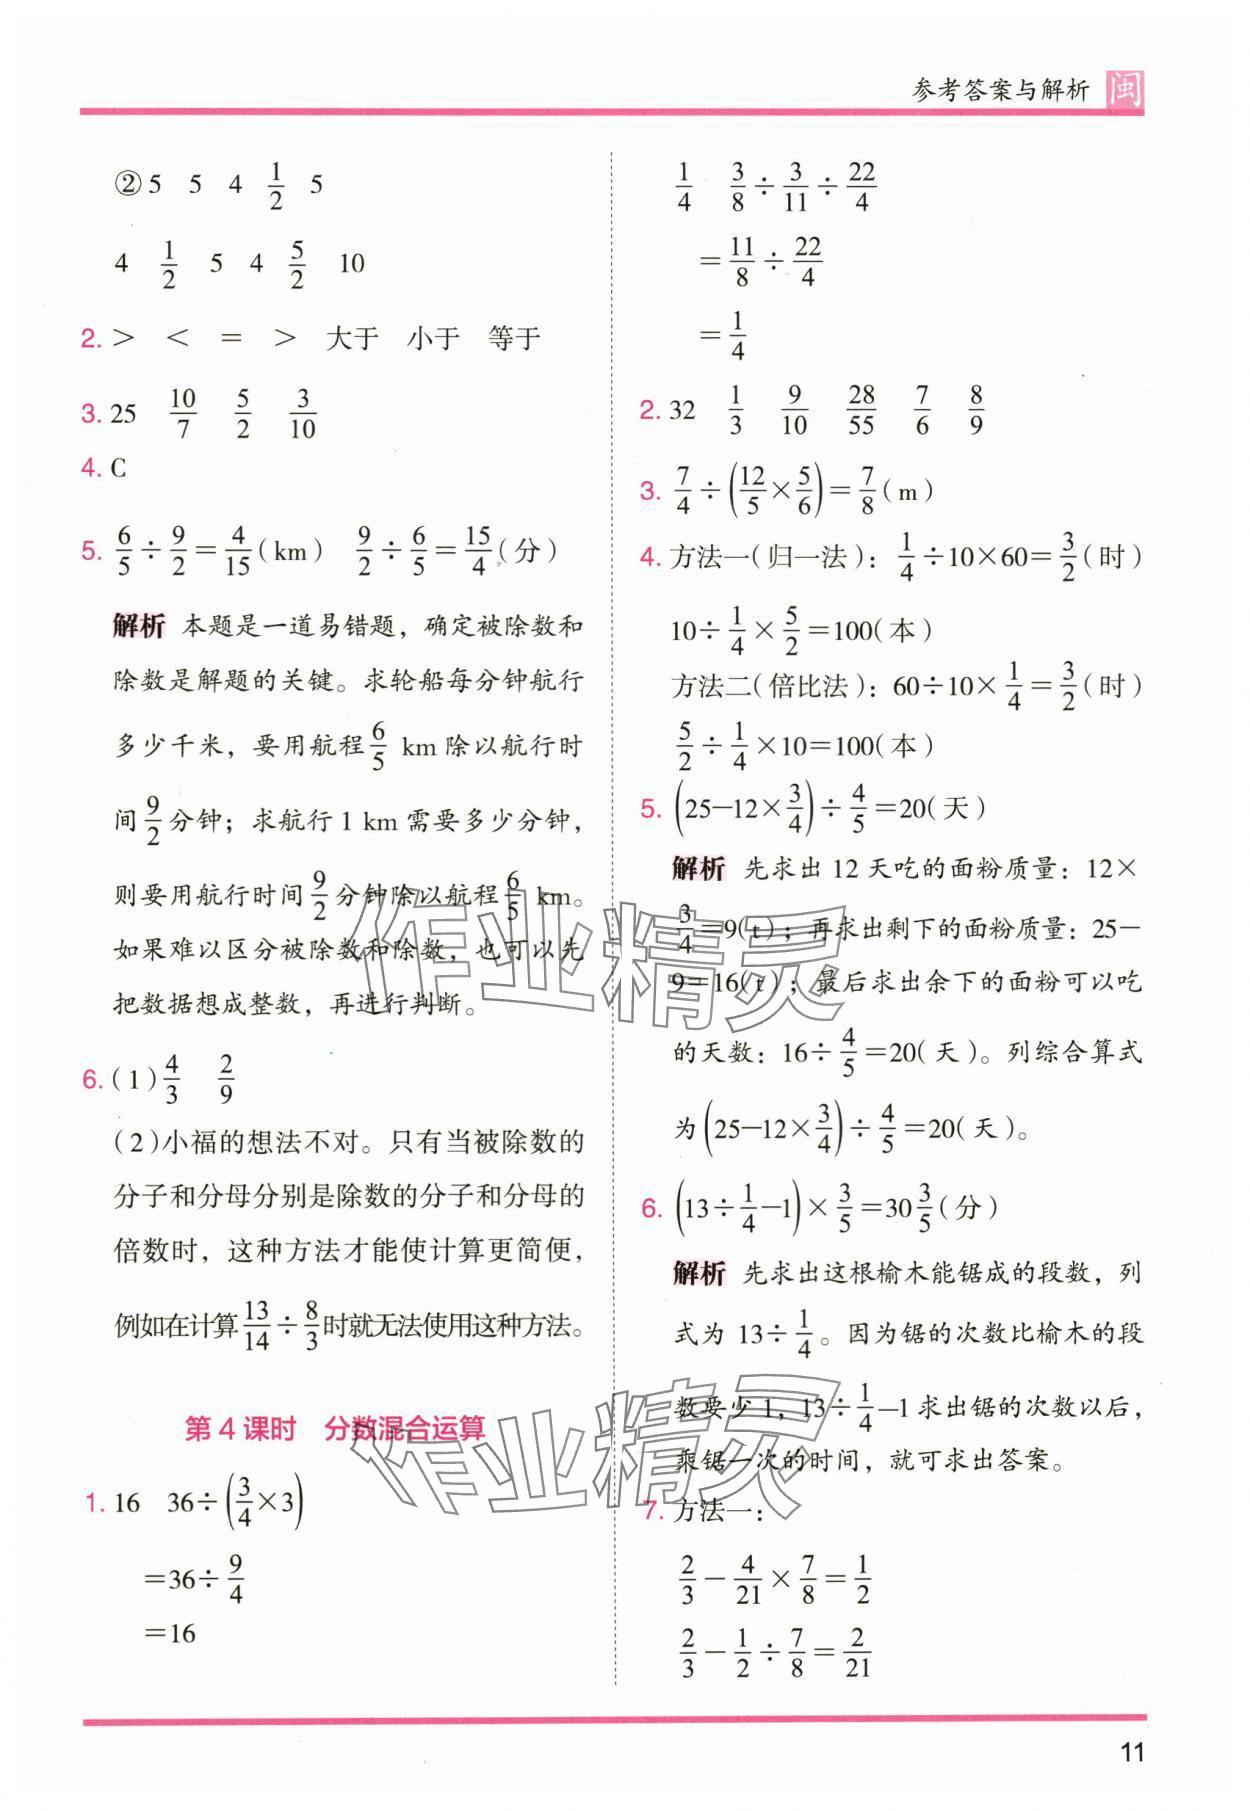 参考答案与解析 闽
②5 5 4 1/2 5
4 1/2 5 4 5/2 10
2. > < = > 大于 小于 等于
3. 25 10/7 5/2 3/10
4. C
5. 6/5÷9/2=4/15(km) 9/2÷6/5=15/4(分)
解析 本题是一道易错题，确定被除数和
除数是解题的关键。求轮船每分钟航行
多少千米，要用航程6/5 km除以航行时
间9/2分钟；求航行1 km需要多少分钟，
则要用航行时间9/2分钟除以航程6/5 km。
如果难以区分被除数和除数，也可以先
把数据想成整数，再进行判断。
6. (1)4/3 2/9
(2)小福的想法不对。只有当被除数的
分子和分母分别是除数的分子和分母的
倍数时，这种方法才能使计算更简便，
例如在计算13/14÷8/3时就无法使用这种方法。
第4课时 分数混合运算
1. 16 36÷(3/4×3)
=36÷9/4
=16
1/4 3/8÷3/11÷22/4
=11/8÷22/4
=1/4
2. 32 1/3 9/10 28/55 7/6 8/9
3. 7/4÷(12/5×5/6)=7/8(m)
4. 方法一(归一法)：1/4÷10×60=3/2(时)
10÷1/4×5/2=100(本)
方法二(倍比法)：60÷10×1/4=3/2(时)
5/2÷1/4×10=100(本)
5. (25-12×3/4)÷4/5=20(天)
解析 先求出12天吃的面粉质量：12×
3/4=9(t)；再求出剩下的面粉质量：25-
9=16(t)；最后求出余下的面粉可以吃
的天数：16÷4/5=20(天)。列综合算式
为(25-12×3/4)÷4/5=20(天)。
6. (13÷1/4-1)×3/5=30 3/5(分)
解析 先求出这根榆木能锯成的段数，列
式为13÷1/4。因为锯的次数比榆木的段
数要少1，13÷1/4-1求出锯的次数以后，
乘锯一次的时间，就可求出答案。
7. 方法一：
2/3-4/21×7/8=1/2
2/3-1/2÷7/8=2/21
作业精灵
作业精灵
11